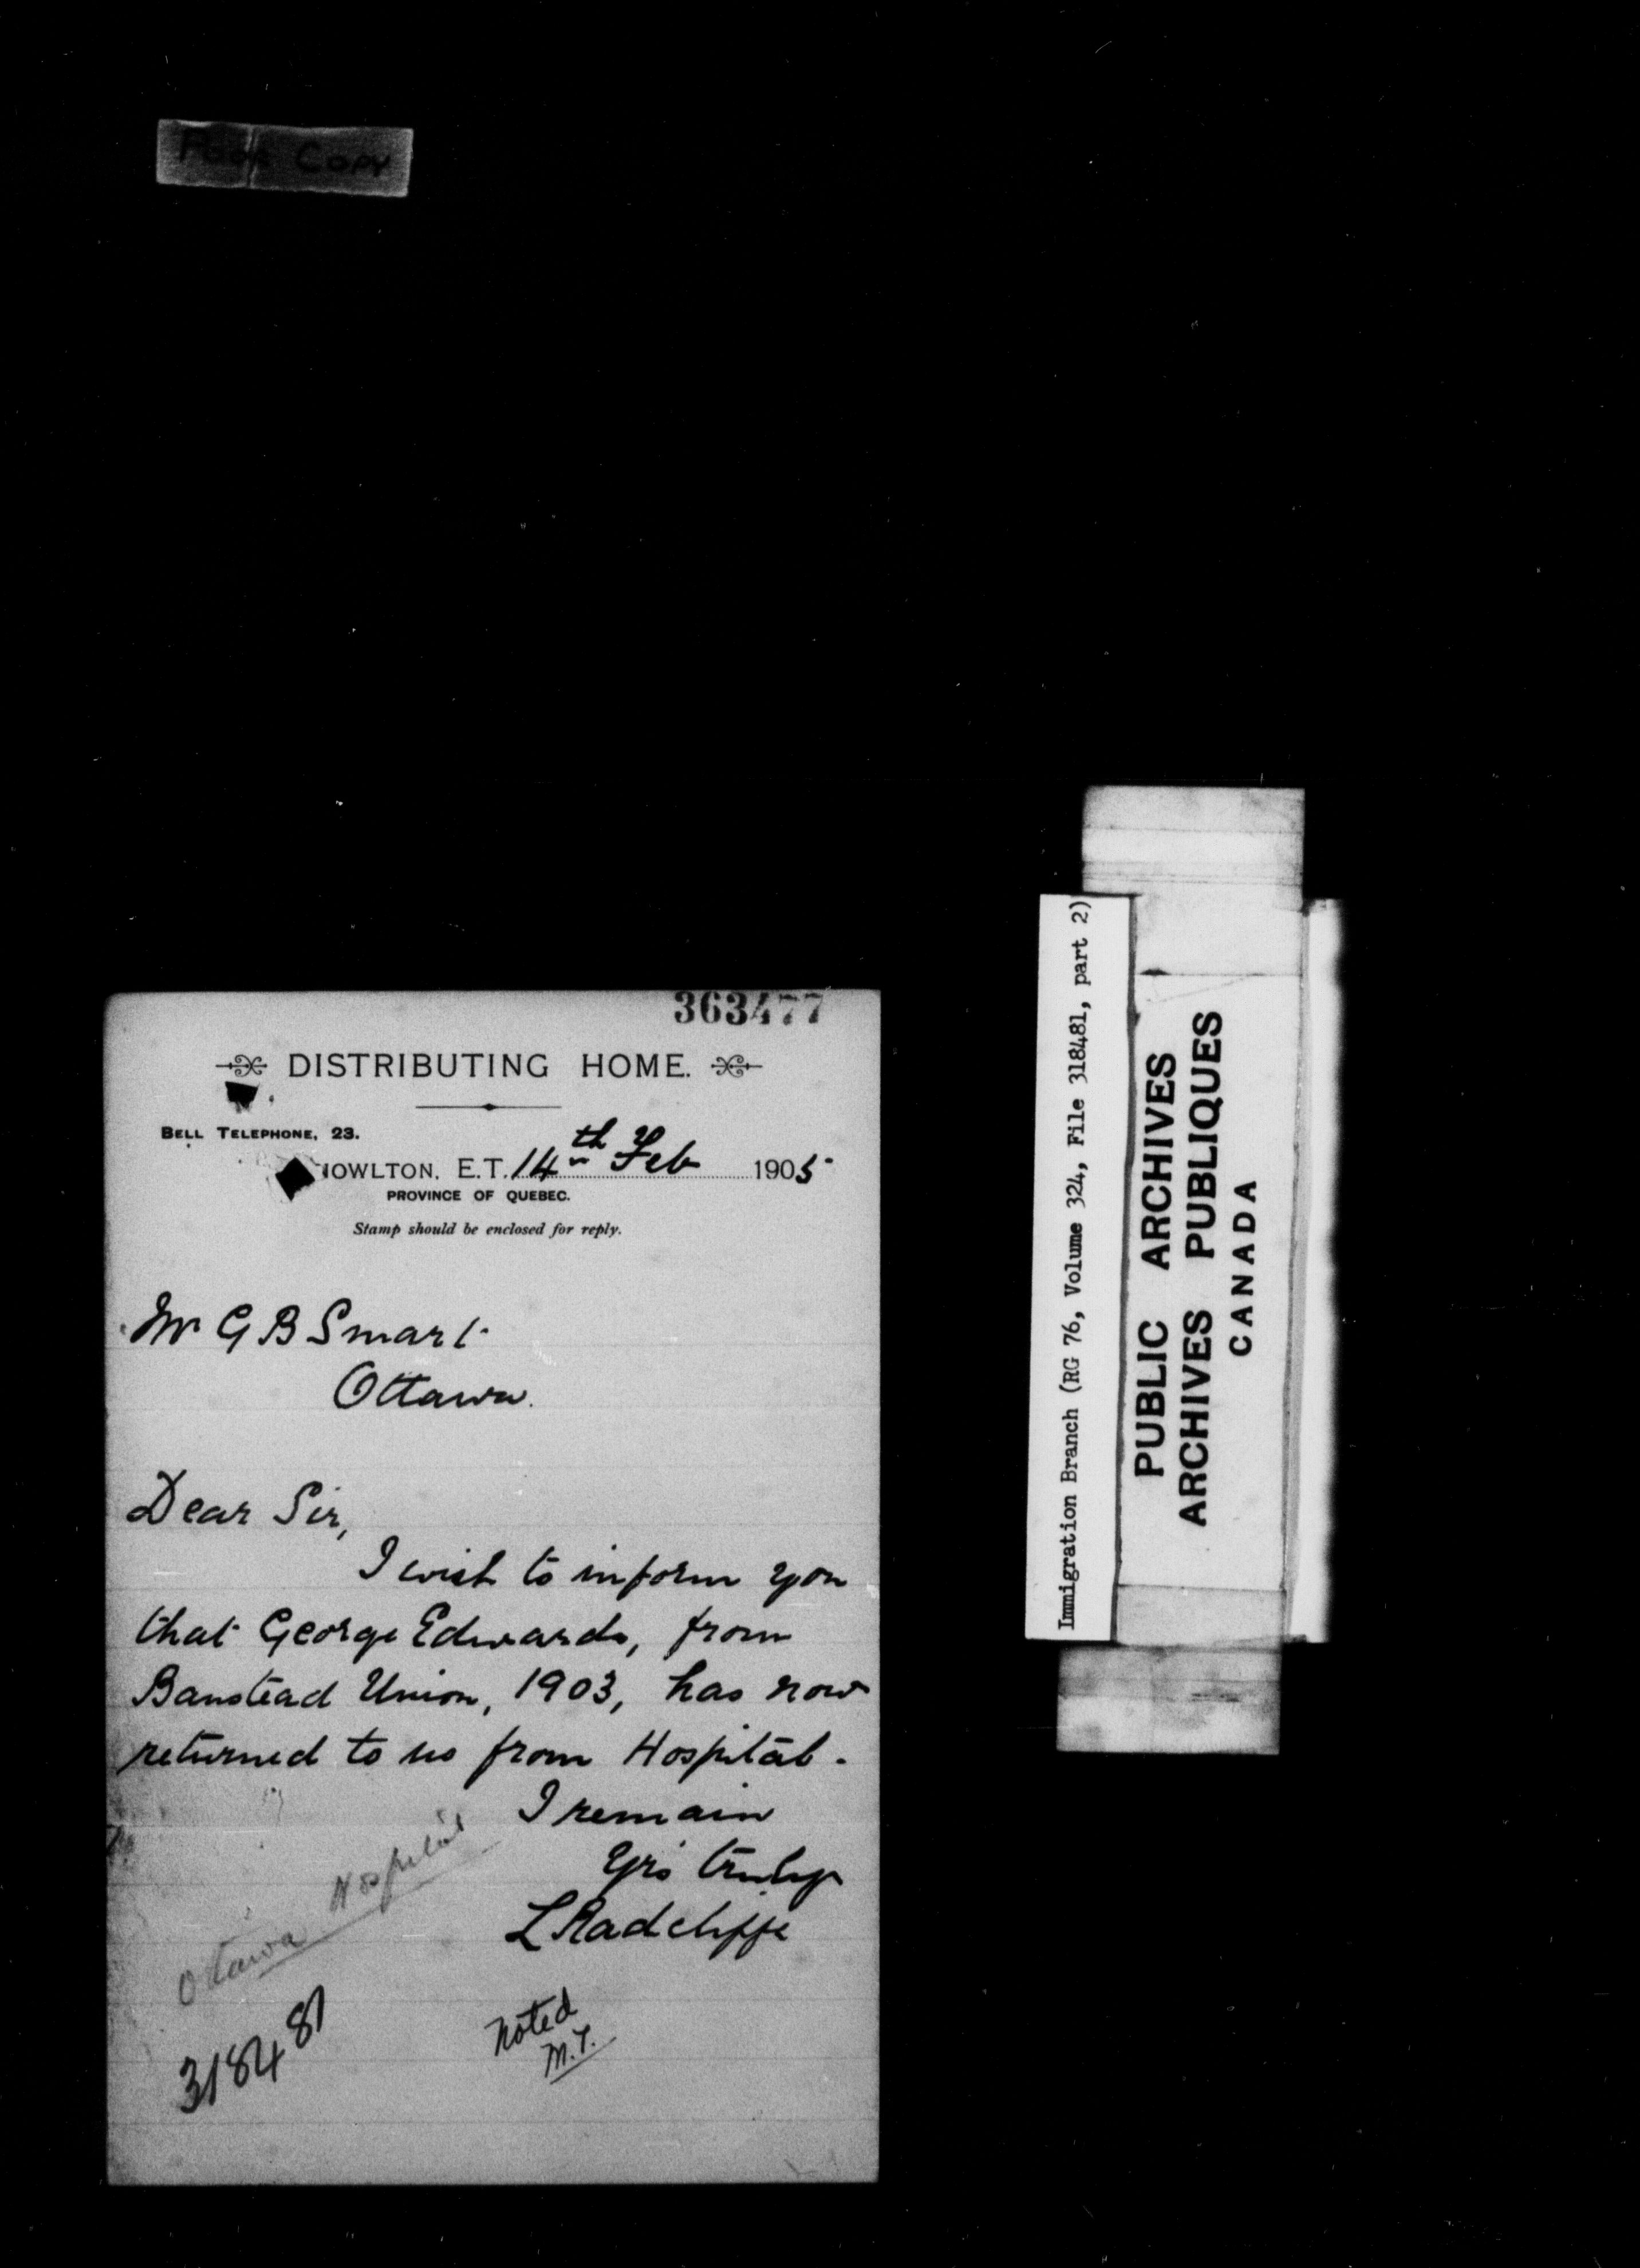 Poor Copy
363477
DISTRIBUTING HOME.
BELL TELEPHONE, 23.
NOWLTON, E.T. 14th Feb 1905
PROVINCE OF QUEBEC.
Stamp should be enclosed for reply.
Mr G B Smart
Ottawa.
Dear Sir,
I wish to inform you
that George Edwards, from
Banstead Union, 1903, has now
returned to us from Hospital.
I remain
Yrs truly
L Radcliffe
Ottawa Hospital
318481
Noted
M.Y.
Immigration Branch (RG 76, Volume 324, File 318481, part 2)
PUBLIC ARCHIVES
ARCHIVES PUBLIQUES
CANADA